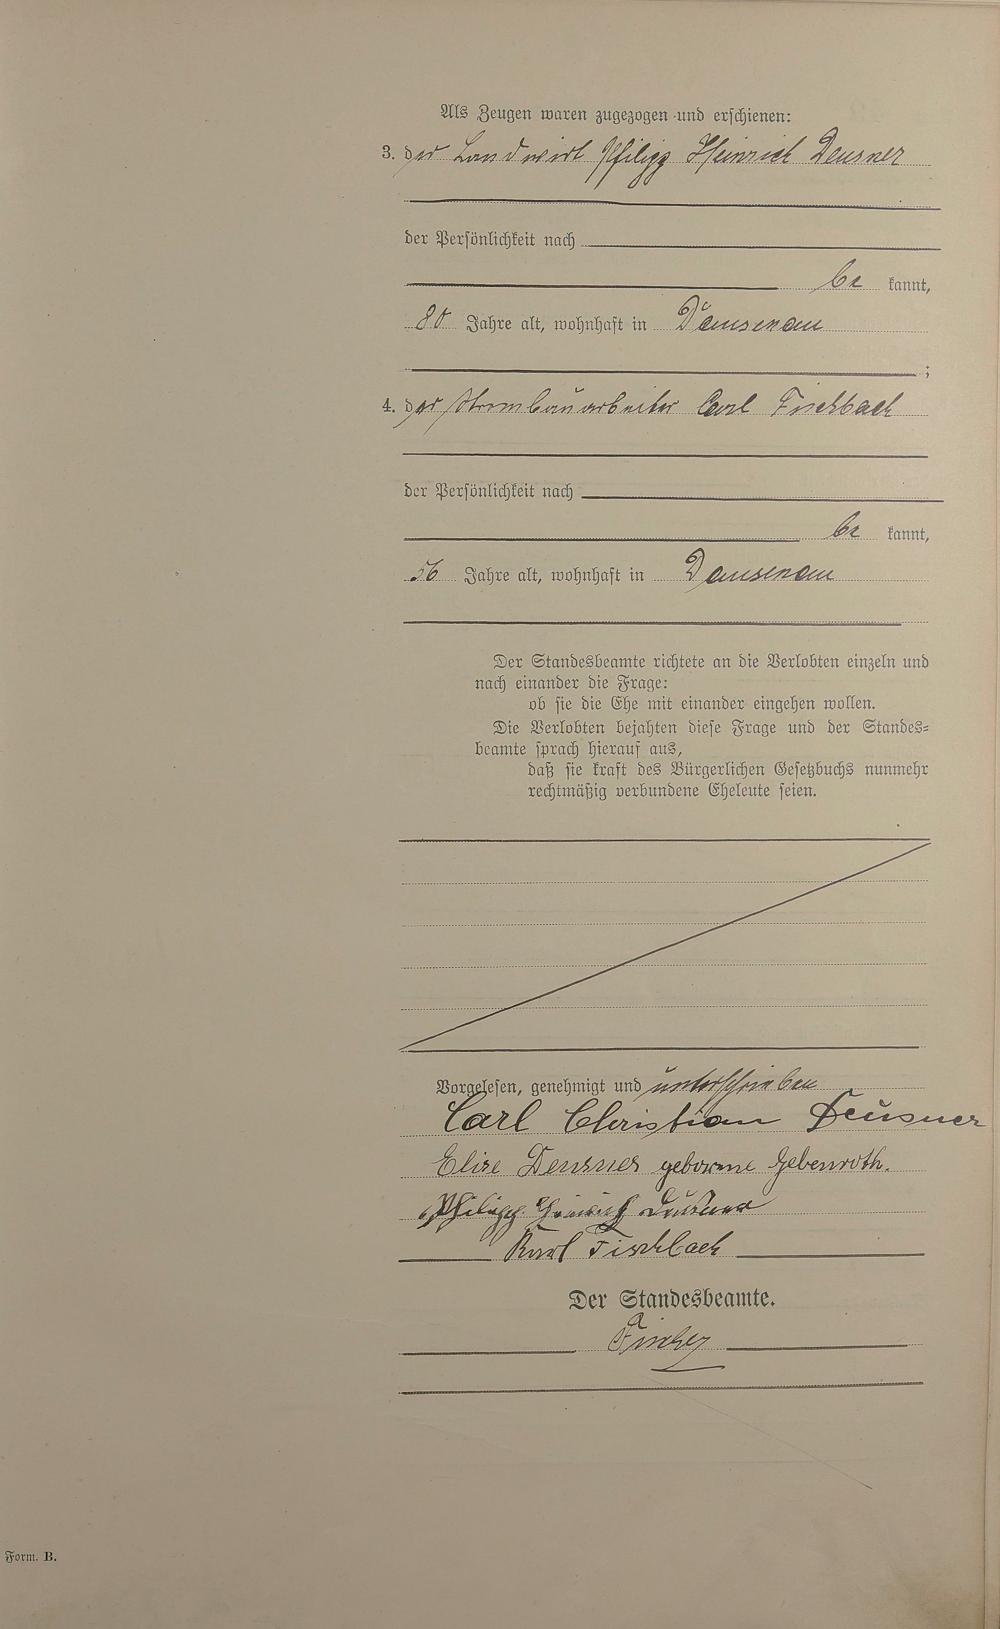 Als Zeugen waren zugezogen und erschienen:
3. der Landwirt Philipp Heinrich Deusner
der Persönlichkeit nach
be kannt,
80 Jahre alt, wohnhaft in Dausenau
;
4. der Strombauarbeiter Carl Fischbach
der Persönlichkeit nach
be kannt,
56 Jahre alt, wohnhaft in Dausenau
Der Standesbeamte richtete an die Verlobten einzeln und
nach einander die Frage:
ob sie die Ehe mit einander eingehen wollen.
Die Verlobten bejahten diese Frage und der Standes=
beamte sprach hierauf aus,
daß sie kraft des Bürgerlichen Gesetzbuchs nunmehr
rechtmäßig verbundene Eheleute seien.
Vorgelesen, genehmigt und unterschrieben
Carl Christian Deusner
Elise Deusner geborene Hebenroth.
Philipp Heinrich Deusner
Karl Fischbach
Der Standesbeamte.
Form. B.